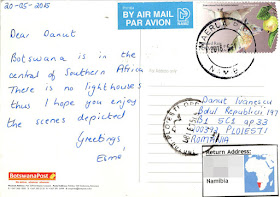 20-05-2015
Dear Danut
Botswana is in the
central of Southern Africa
There is no lighthouses
thus I hope you enjoy
the scenes depicted
Greetings
BY AIR MAIL
PAR AVION
Danut Ivanescu
Bdul Republicii 197
B1 5C1 ap 33
PLOIESTI
ROMANIA
Return Address:
Namibia
BotswanaPost